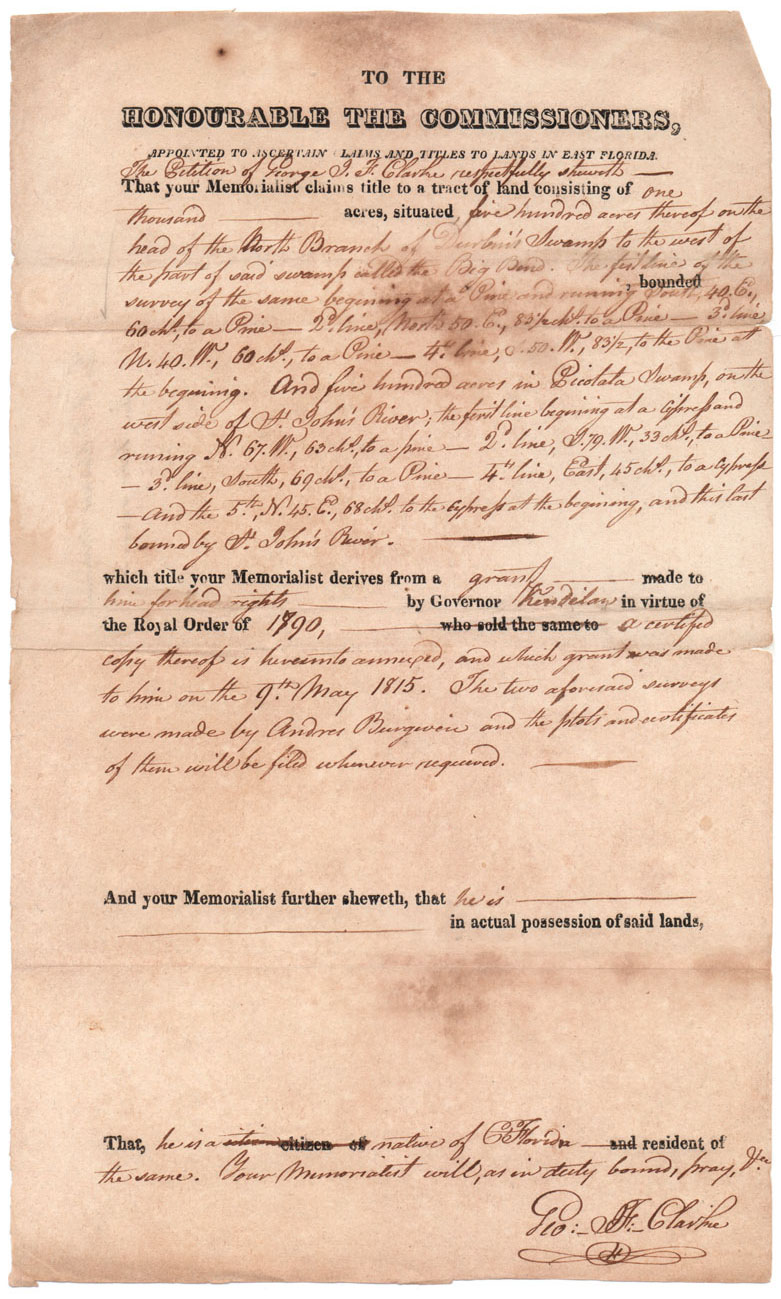 TO THE
HONOURABLE THE COMMISSIONERS,
APPOINTED TO ASCERTAIN CLAIMS AND TITLES TO LANDS IN EAST FLORIDA.
The Petition of George J. F. Clarke respectfully sheweth —
That your Memorialist claims title to a tract of land consisting of one
thousand —— acres, situated, five hundred acres thereof on the
head of the North Branch of Durbin's Swamp to the west of
the part of said swamp called the Big Bend. The first line of the
survey of the same begining at a Pine and running South, 40. E., , bounded
60 chs., to a Pine — 2d. line, North 50. E., 83 1/2 chs. to a Pine — 3d. line
N. 40. W., 60 chs., to a Pine — 4th. line, S. 50. W., 83 1/2, to the Pine at
the begining. And five hundred acres in Picolata Swamp, on the
west side of St. John's River; the first line begining at a Cypress and
runing N. 67. W., 63 chs., to a pine — 2d. line, S. 79. W., 33 chs., to a Pine —
— 3d. line, South, 69 chs., to a Pine — 4th. line, East, 45 chs., to a Cypress
— And the 5th., N. 45. E., 68 chs. to the Cypress at the begining, and this last
bound by St. John's River. ——
which title your Memorialist derives from a grant —— made to
him for head rights —— by Governor Kindelan in virtue of
the Royal Order of 1790, —— who sold the same to a certified
copy thereof is hereunto annexed, and which grant was made
to him on the 9th. May 1815. The two aforesaid surveys
were made by Andres Burgevin and the plots and certificates
of them will be filed whenever required. ——
And your Memorialist further sheweth, that he is ——
—— in actual possession of said lands,
That, he is a citizen of native of E. Florida — and resident of
the same. Your Memorialist will, as in duty bound, pray, &c.
Geo: J. F. Clarke